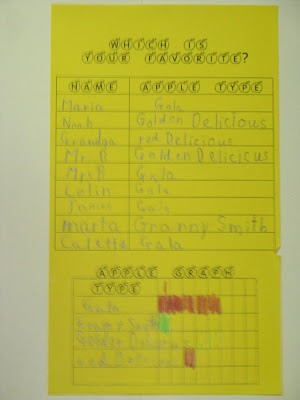 WHICH IS
YOUR FAVORITE?
NAME APPLE TYPE
Maria Gala
Noah Golden Delicious
Grandpa red Delicious
Mr. B Golden Delicicus
Mrs B Gala
Colin Gala
James Gala
marta Granny Smith
Colette Gala
APPLE GRAPH
TYPE
Gala
Smith
Golden Delicious
red